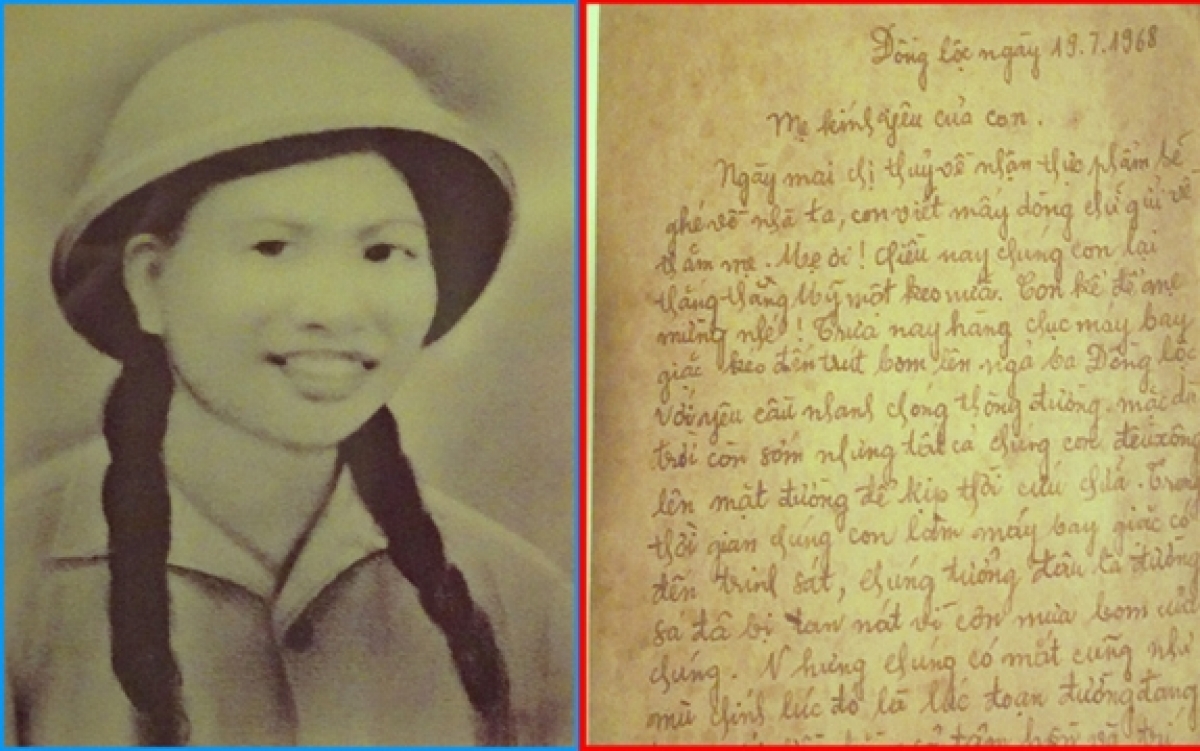 Đồng lộc ngày 19.7.1968
Mẹ kính yêu của con.
Ngày mai chị thuý về nhận thực phẩm sẽ
ghé về nhà ta, con viết mấy dòng chữ gửi về
thăm mẹ. Mẹ ơi! Chiều nay chúng con lại
thắng thằng Mỹ một keo nữa. Con kể để mẹ
mừng nhé! Trưa nay hàng chục máy bay
giặc kéo đến trút bom lên ngã ba Đồng lộc
với yêu cầu nhanh chóng thông đường, mặc dù
trời còn sớm nhưng tất cả chúng con đều xông
lên mặt đường để kịp thời cứu chữa. Trong
thời gian chúng con làm máy bay giặc có
đến trinh sát, chúng tưởng đâu là đường
sá đã bị tan nát vì cơn mưa bom của
chúng. Nhưng chúng có mắt cũng như
mù chính lúc đó là lúc đoạn đường đang